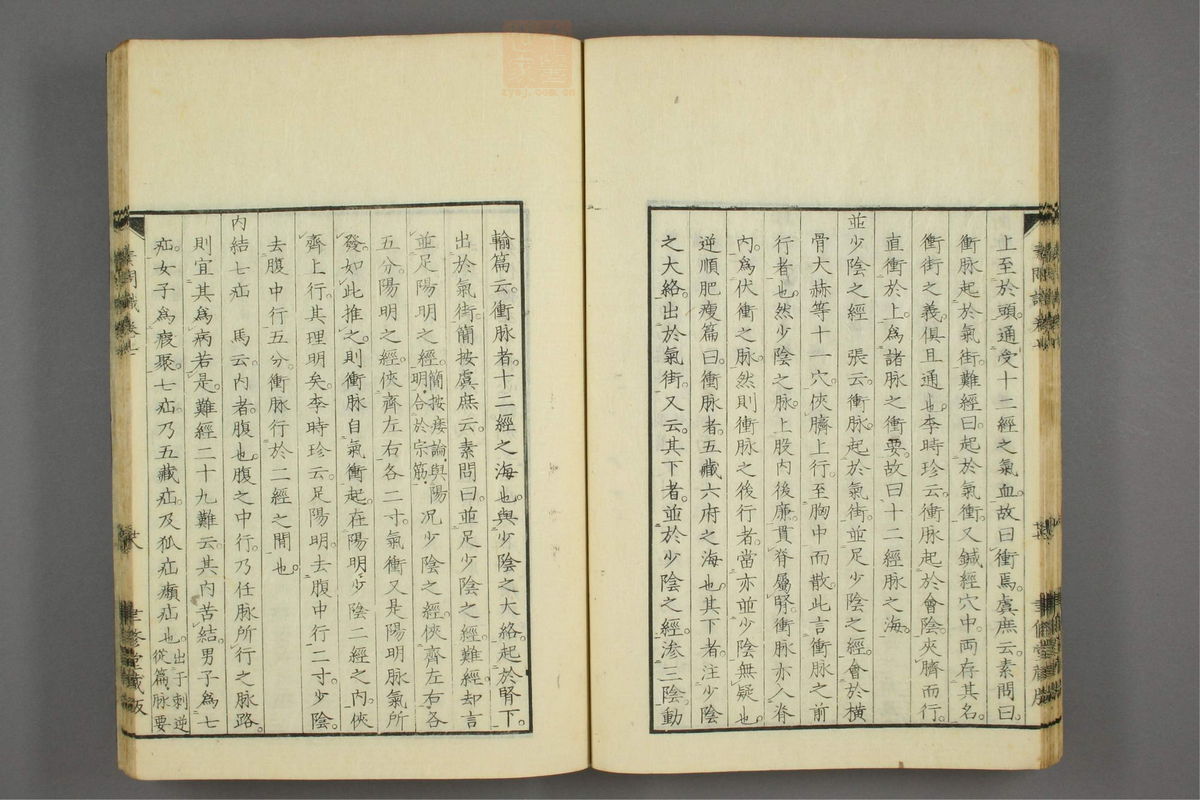 上至於頭通受十二經之氣血故曰衝焉虞庶云素問曰
衝脉起於氣街難經曰起於氣衝又鍼經穴中兩存其名
衝街之義俱且通也李時珍云衝脉起於會陰夾臍而行
直衝於上爲諸脉之衝要故曰十二經脉之海
並少陰之經 張云衝脉起於氣街並足少陰之經會於橫
骨大赫等十一穴俠臍上行至胸中而散此言衝脉之前
行者也然少陰之脉上股内後廉貫脊屬腎衝脉亦入脊
内爲伏衝之脉然則衝脉之後行者當亦並少陰無疑也
逆順肥瘦篇曰衝脉者五藏六府之海也其下者注少陰
之大絡出於氣街又云其下者並於少陰之經滲三陰動
輸篇云衝脉者十二經之海也與少陰之大絡起於腎下
出於氣街簡按虞庶云素問曰並足少陰之經難經却言
並足陽明之經簡按痿論與陽明合於宗筋況少陰之經俠齊左右各
五分陽明之經俠齊左右各二寸氣衝又是陽明脉氣所
發如此推之則衝脉自氣衝起在陽明少陰二經之内俠
齊上行其理明矣李時珍云足陽明去腹中行二寸少陰
去腹中行五分衝脉行於二經之間也
内結七疝 馬云内者腹也腹之中行乃任脉所行之脉路
則宜其爲病若是難經二十九難云其内苦結男子爲七
疝女子爲瘕聚七疝乃五藏疝及狐疝㿗疝也出于刺逆從篇脉要
素問識 卷七
聿修堂藏版